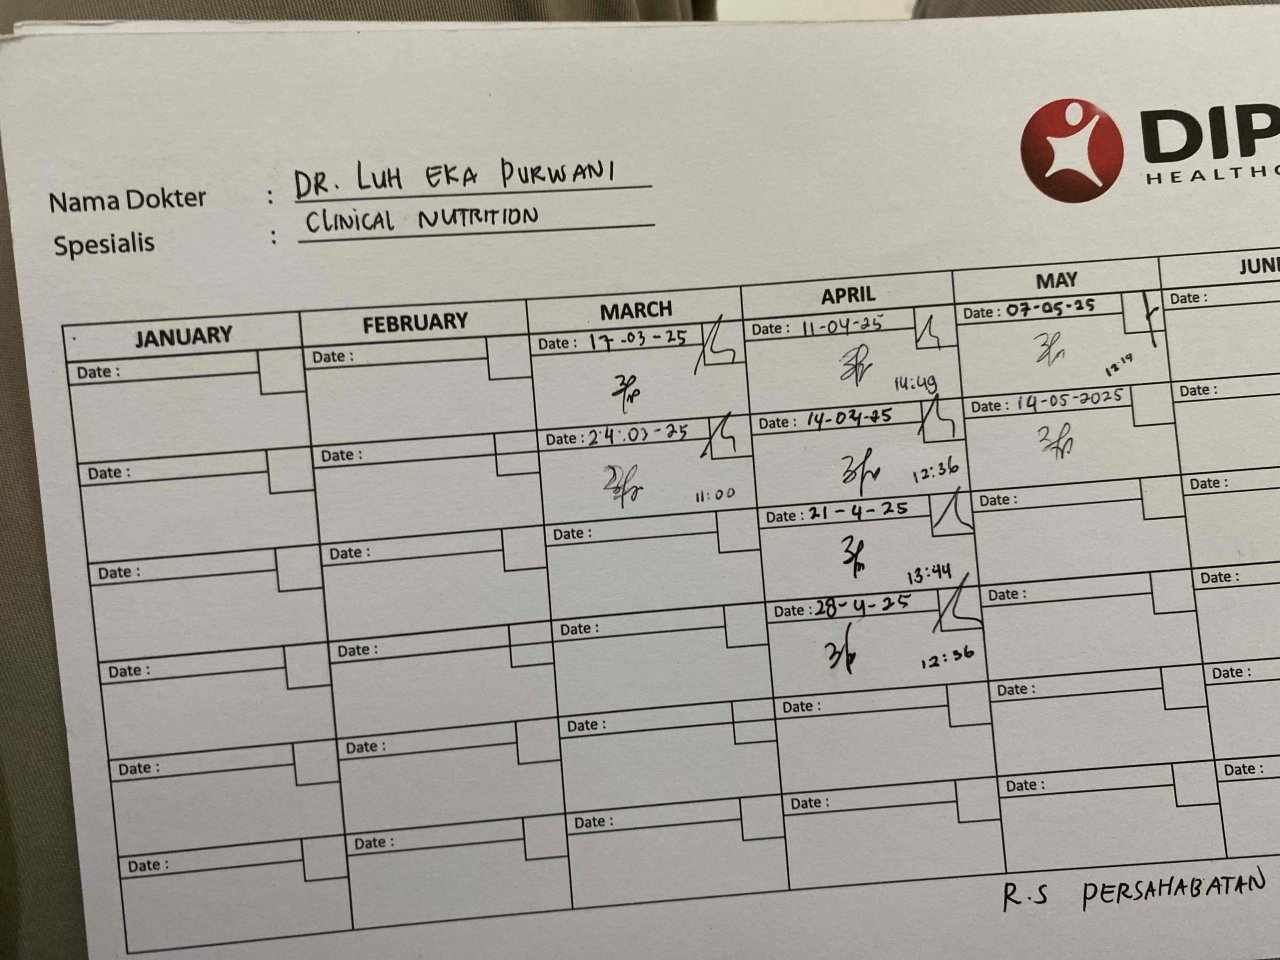 DIP
HEALTHC
Nama Dokter : DR. LUH EKA PURWANI
Spesialis : CLINICAL NUTRITION
JANUARY FEBRUARY MARCH APRIL MAY JUNE
Date : Date : Date : 17-03-25 Date : 11-04-25 Date : 07-05-25 Date :
14:49 12:19
Date : Date : Date : 24.03-25 Date : 14-04-25 Date : 14-05-2025 Date :
11:00 12:36
Date : Date : Date : Date : 21-4-25 Date : Date :
13:44
Date : Date : Date : Date : 28-4-25 Date : Date :
12:36
Date : Date : Date : Date : Date : Date :
Date : Date : Date : Date : Date : Date :
R.S PERSAHABATAN